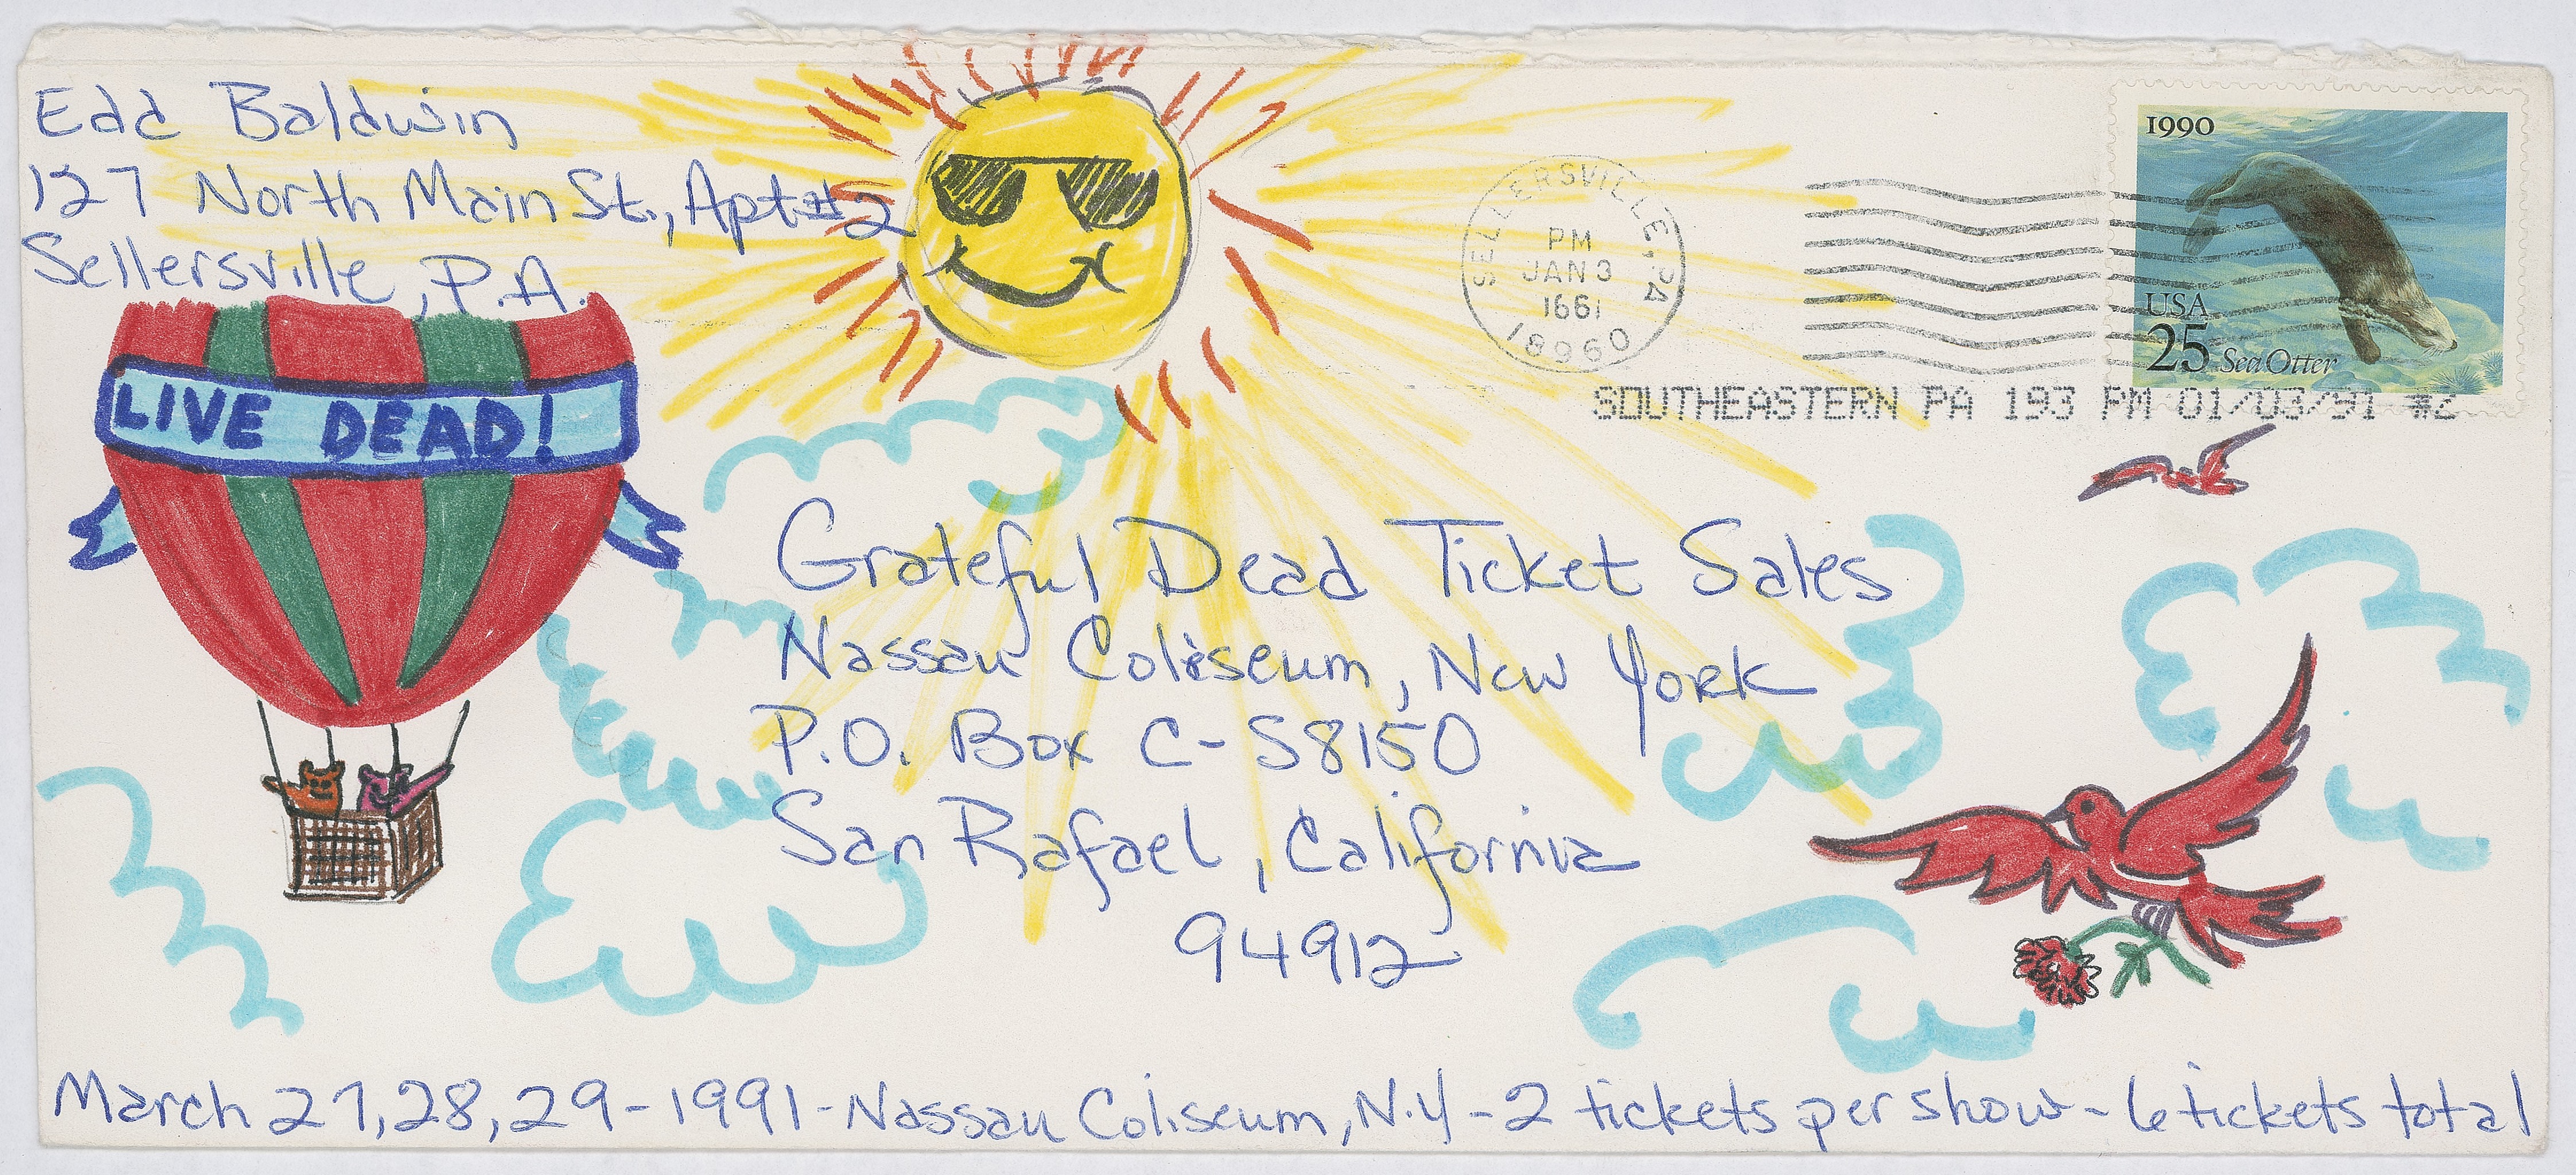 Edd Baldwin
127 North Main St., Apt #2
Sellersville, P.A.
LIVE DEAD!
SELLERSVILLE, PA
PM
JAN 3
1661
18960
1990
USA
25 Sea Otter
SOUTHEASTERN PA 193 PM 01/03/91 #2
Grateful Dead Ticket Sales
Nassau Coliseum, New York
P.O. Box C-S8150
San Rafael, California
94912
March 27, 28, 29 - 1991 - Nassau Coliseum, N.Y - 2 tickets per show - 6 tickets total